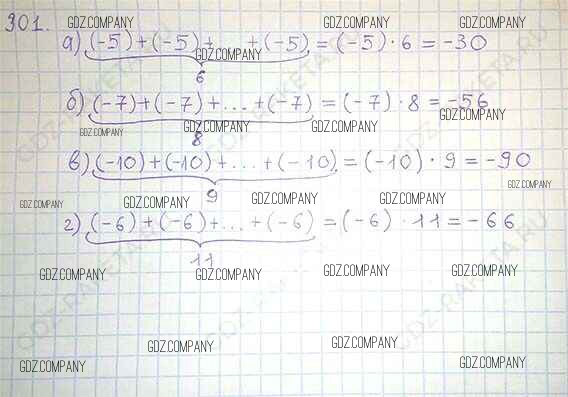 301.
GDZ.COMPANY GDZ.COMPANY GDZ.COMPANY
а) (-5)+(-5)+ ... +(-5) = (-5)·6 = -30
GDZ.COMPANY
6
б) (-7)+(-7)+...+(-7) = (-7)·8 = -56
GDZ.COMPANY
GDZ.COMPANY GDZ.COMPANY GDZ.COMPANY
8
в) (-10)+(-10)+...+(-10) = (-10)·9 = -90
GDZ.COMPANY
9
GDZ.COMPANY GDZ.COMPANY GDZ.COMPANY GDZ.COMPANY
г) (-6)+(-6)+...+(-6) = (-6)·11 = -66
11
GDZ.COMPANY GDZ.COMPANY GDZ.COMPANY GDZ.COMPANY
GDZ-RAKETA.RU
GDZ.COMPANY GDZ.COMPANY
GDZ.COMPANY GDZ.COMPANY GDZ.COMPANY